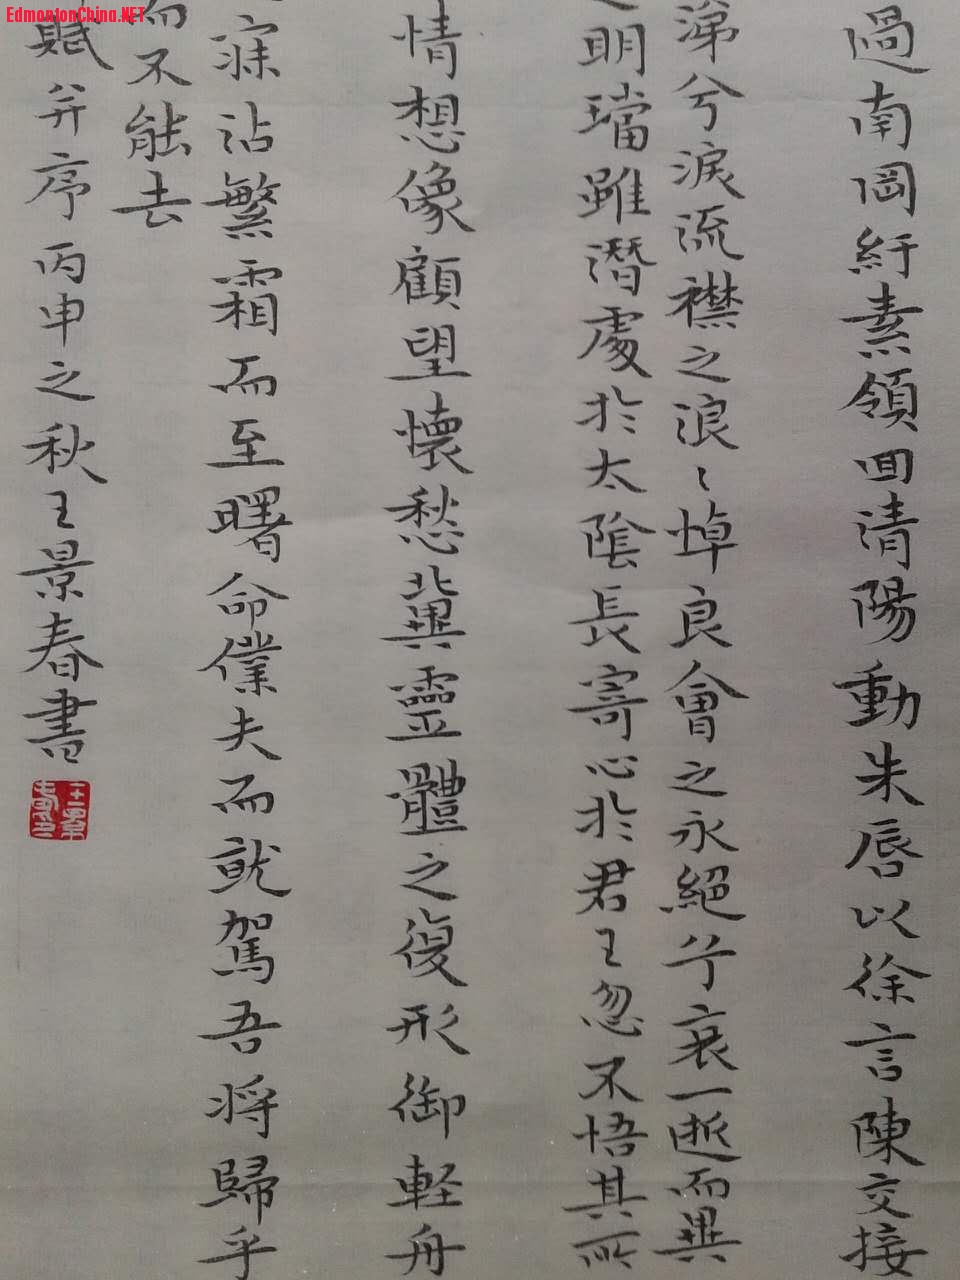 EdmontonChina.NET
過南岡紆素領回清陽動朱唇以徐言陳交接
涕兮淚流襟之浪〻悼良會之永絕兮哀一逝而異
明璫雖潛處於太陰長寄心於君王忽不悟其所
情想像顧望懷愁冀靈體之復形御軽舟
寐沾繁霜而至曙命僕夫而就駕吾將歸乎
而不能去
賦并序丙申之秋王景春書